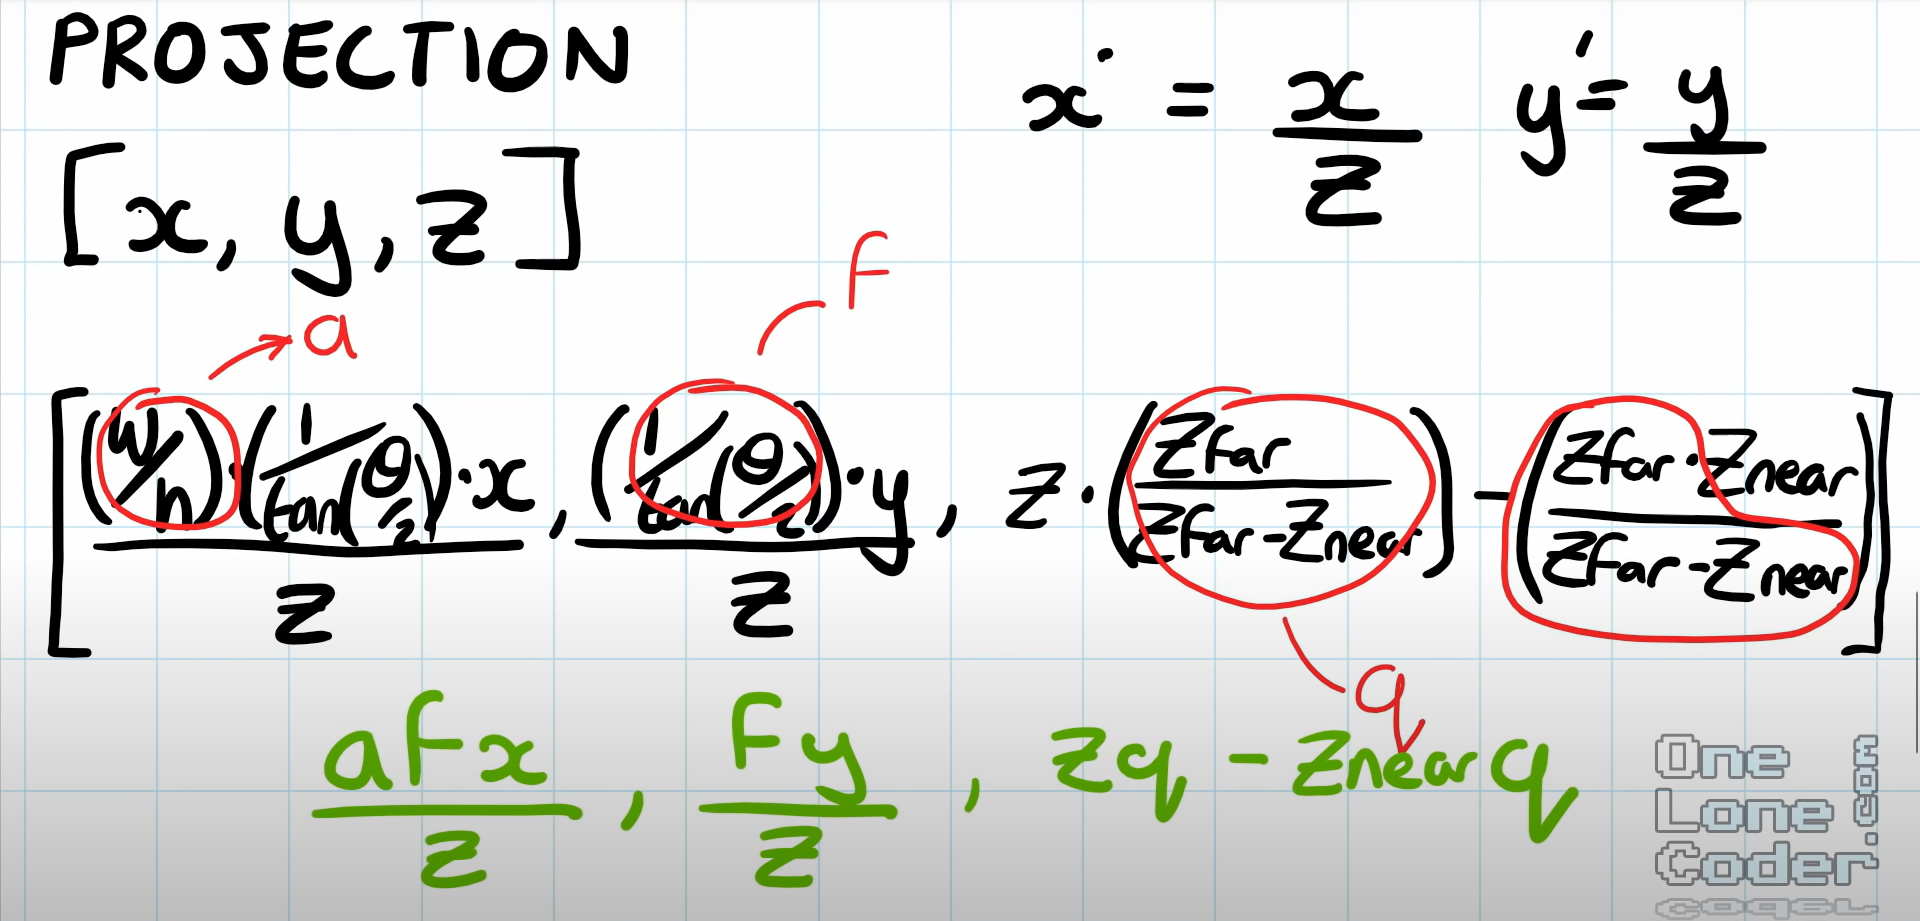 PROJECTION
x' = x/z y' = y/z
[x, y, z]
a
F
[(w/h)·(1/tan(θ/2))·x / z, (1/tan(θ/2))·y / z, z·(Zfar / Zfar-Znear) - (Zfar·Znear / Zfar-Znear)]
q
aFx/z, Fy/z, Zq - Znear q
One
Lone
Coder
.com